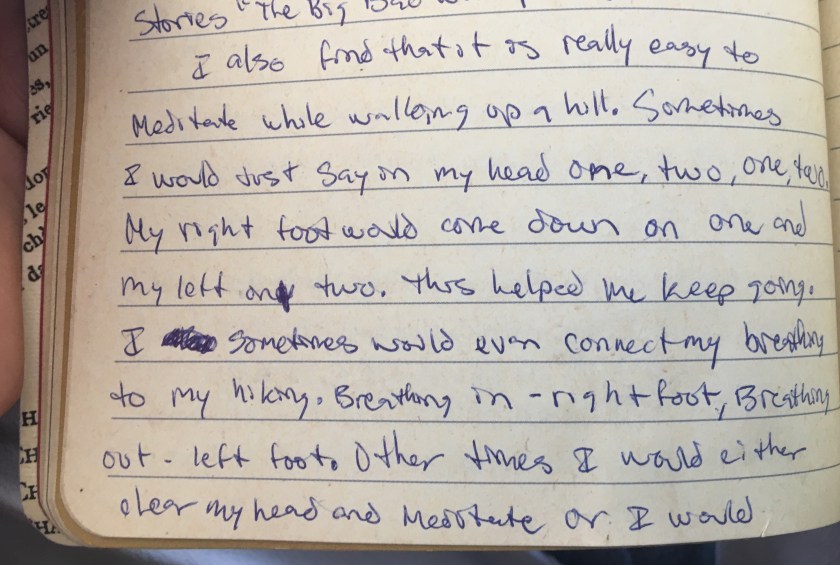 Stories "The Big Bad
I also find that it is really easy to
Meditate while walking up a hill. Sometimes
I would Just Say in my head one, two, one, two.
My right foot would come down on one and
my left on two. This helped me keep going.
I sometimes would even connect my breathing
to my hiking. Breathing in - right foot, Breathing
out - left foot. Other times I would either
clear my head and Meditate or I would